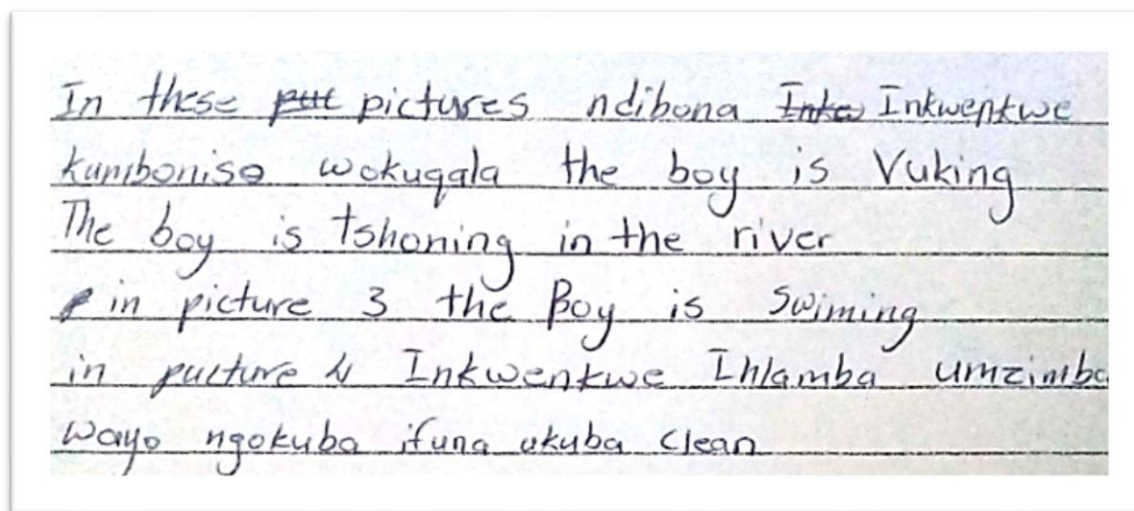 In these pictures ndibona Inkwenkwe
kumboniso wokuqala the boy is Vuking
The boy is tshoning in the river
in picture 3 the Boy is Swiming
in pucture 4 Inkwenkwe Ihlamba umzimba
wayo ngokuba ifuna ukuba clean